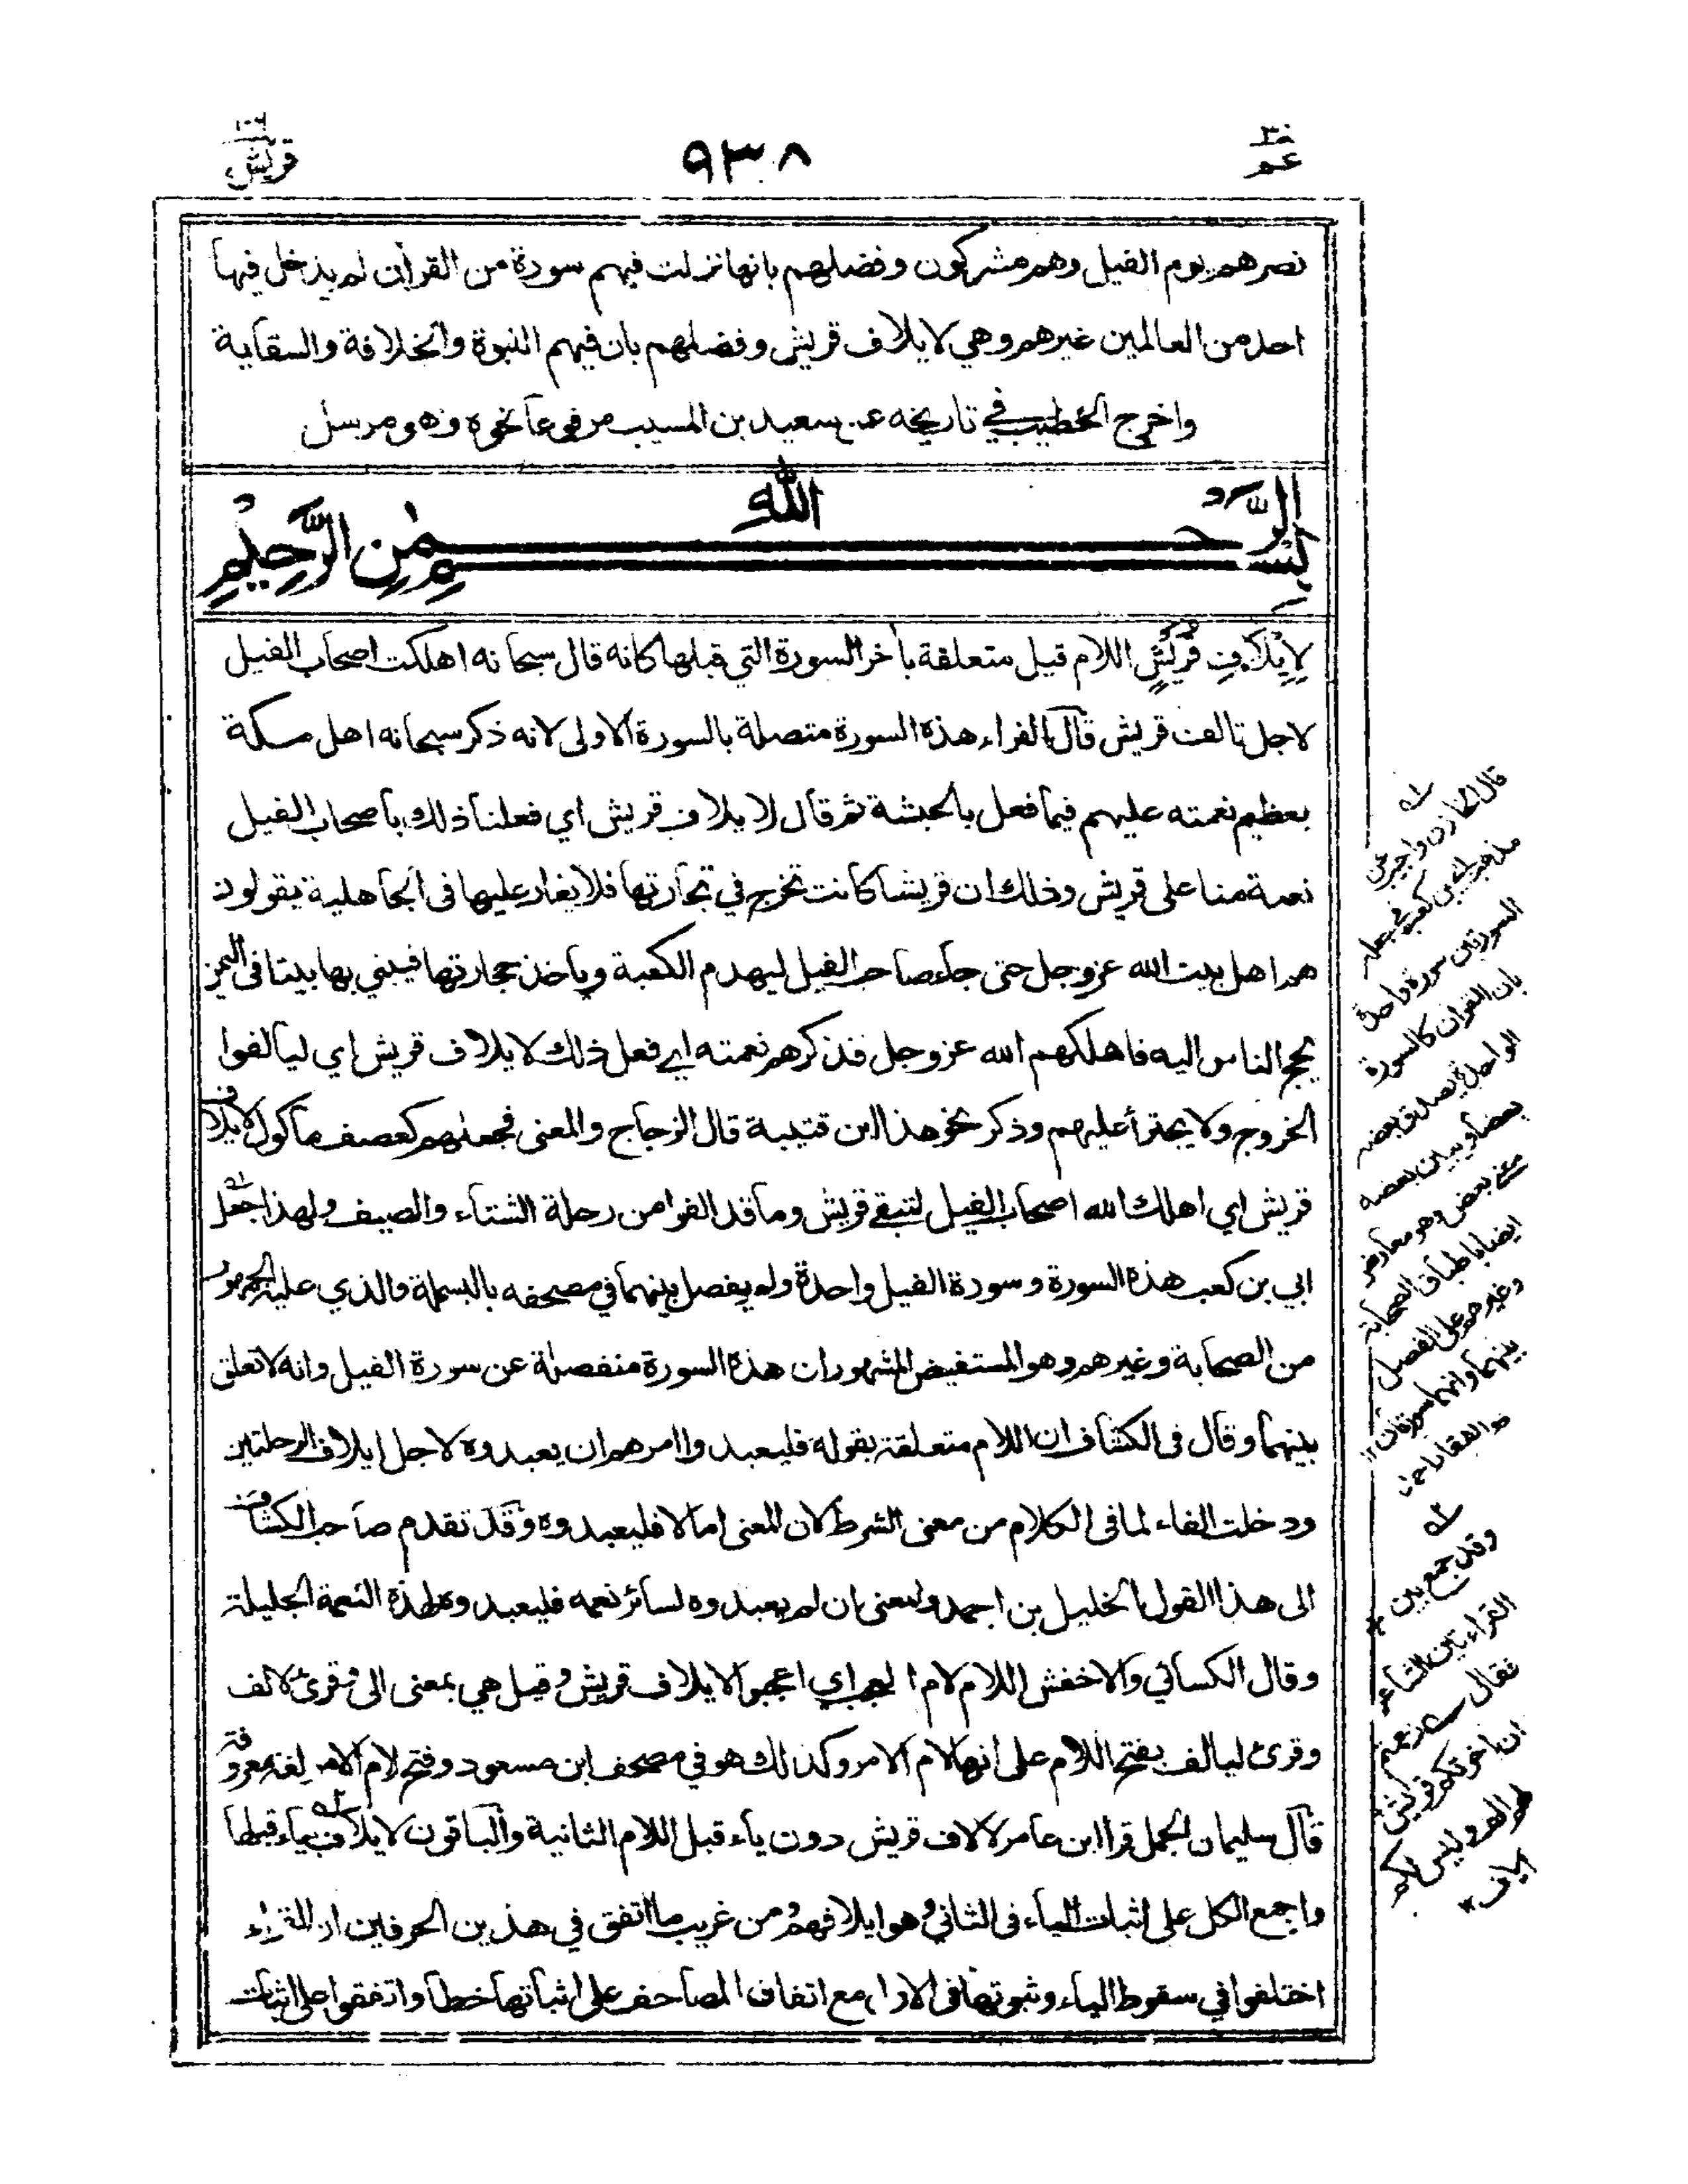 عم ٣٠
٩٣٨
قريش ١٠٦
نصرهم يوم الفيل وهم مشركون وفضلهم بانها نزلت فيهم سورة من القرآن لم يدخل فيها
احد من العالمين غيرهم وهي لايلاف قريش وفضلهم بان فيهم النبوة والخلافة والسقاية
واخرج الخطيب في تاريخه عن سعيد بن المسيب مرفوعا نحوه وهو مرسل
بِسْمِ اللهِ الرَّحْمٰنِ الرَّحِيْمِ
لِاِيْلٰفِ قُرَيْشٍ اللام قيل متعلقة بأخر السورة التي قبلها كانه قال سبحانه اهلكت اصحاب الفيل
لاجل تالف قريش قال الفراء هذه السورة متصلة بالسورة الاولى لانه ذكر سبحانه اهل مكة
بعظيم نعمته عليهم فيما فعل بالحبشة ثم قال لايلاف قريش اي فعلنا ذلك باصحاب الفيل
نعمة منا على قريش وذلك ان قريشا كانت تخرج في تجارتها فلا يغار عليها فى الجاهلية يقولون
هم اهل بيت الله عز وجل حتى جاء صاحب الفيل ليهدم الكعبة وياخذ حجارتها فيبني بها بيتا فى اليمن
يحج الناس اليه فاهلكهم الله عز وجل فذكرهم نعمته اي فعل ذلك لايلاف قريش اي ليالفوا
الخروج ولا يجترأ عليهم وذكر نحو هذا ابن قتيبة قال الزجاج والمعنى فجعلهم كعصف ماكول لايلاف
قريش اي اهلك الله اصحاب الفيل لتبقى قريش وما قد الفوا من رحلة الشتاء والصيف ولهذا جعل
ابي بن كعب هذه السورة وسورة الفيل واحدة ولم يفصل بينهما في مصحفه بالبسملة والذي عليه الجمهور
من الصحابة وغيرهم وهو المستفيض المشهور ان هذه السورة منفصلة عن سورة الفيل وانه لا تعلق
بينهما وقال فى الكشاف ان اللام متعلقة بقوله فليعبدوا امرهم ان يعبدوه لاجل ايلافهم الرحلتين
ودخلت الفاء لما فى الكلام من معنى الشرط لان المعنى اما لا فليعبدوه وقد تقدم صاحب الكشاف
الى هذا القول الخليل بن احمد والمعنى ان لم يعبدوه لسائر نعمه فليعبدوه لهذه النعمة الجليلة
وقال الكسائي والاخفش اللام لام العجب اي اعجبوا لايلاف قريش وقيل هي بمعنى الى وقرئ لالف
وقرئ ليالف بفتح اللام على انها لام الامر وكذلك هو في مصحف ابن مسعود وفتح لام الامر لغة معروفة
قال سليمان الجمل قرا ابن عامر لالاف قريش دون ياء قبل اللام الثانية والباقون لايلاف بياء قبلها
واجمع الكل على اثبات الياء فى الثاني وهو ايلافهم ومن غريب ما اتفق في هذين الحرفين ان القراء
اختلفوا في سقوط الياء وثبوتها فى الاول مع اتفاق المصاحف على اثباتها خطا واتفقوا على اثبات
قال الخازن واجيب عن
مذهب ابي بن كعب في جعل
السورتين سورة واحدة
بان القران كالسورة
الواحدة يصدق بعضه
بعضا ويبين بعضه
معنى بعض وهو معارض
ايضا باطباق الصحابة
وغيرهم على الفصل
بينهما وانهما سورتان
وقد جمع بين
القراءتين الشاعر
فقال زعمتم
ان اخوتكم قريش
لهم الف وليس لكم
ايلاف